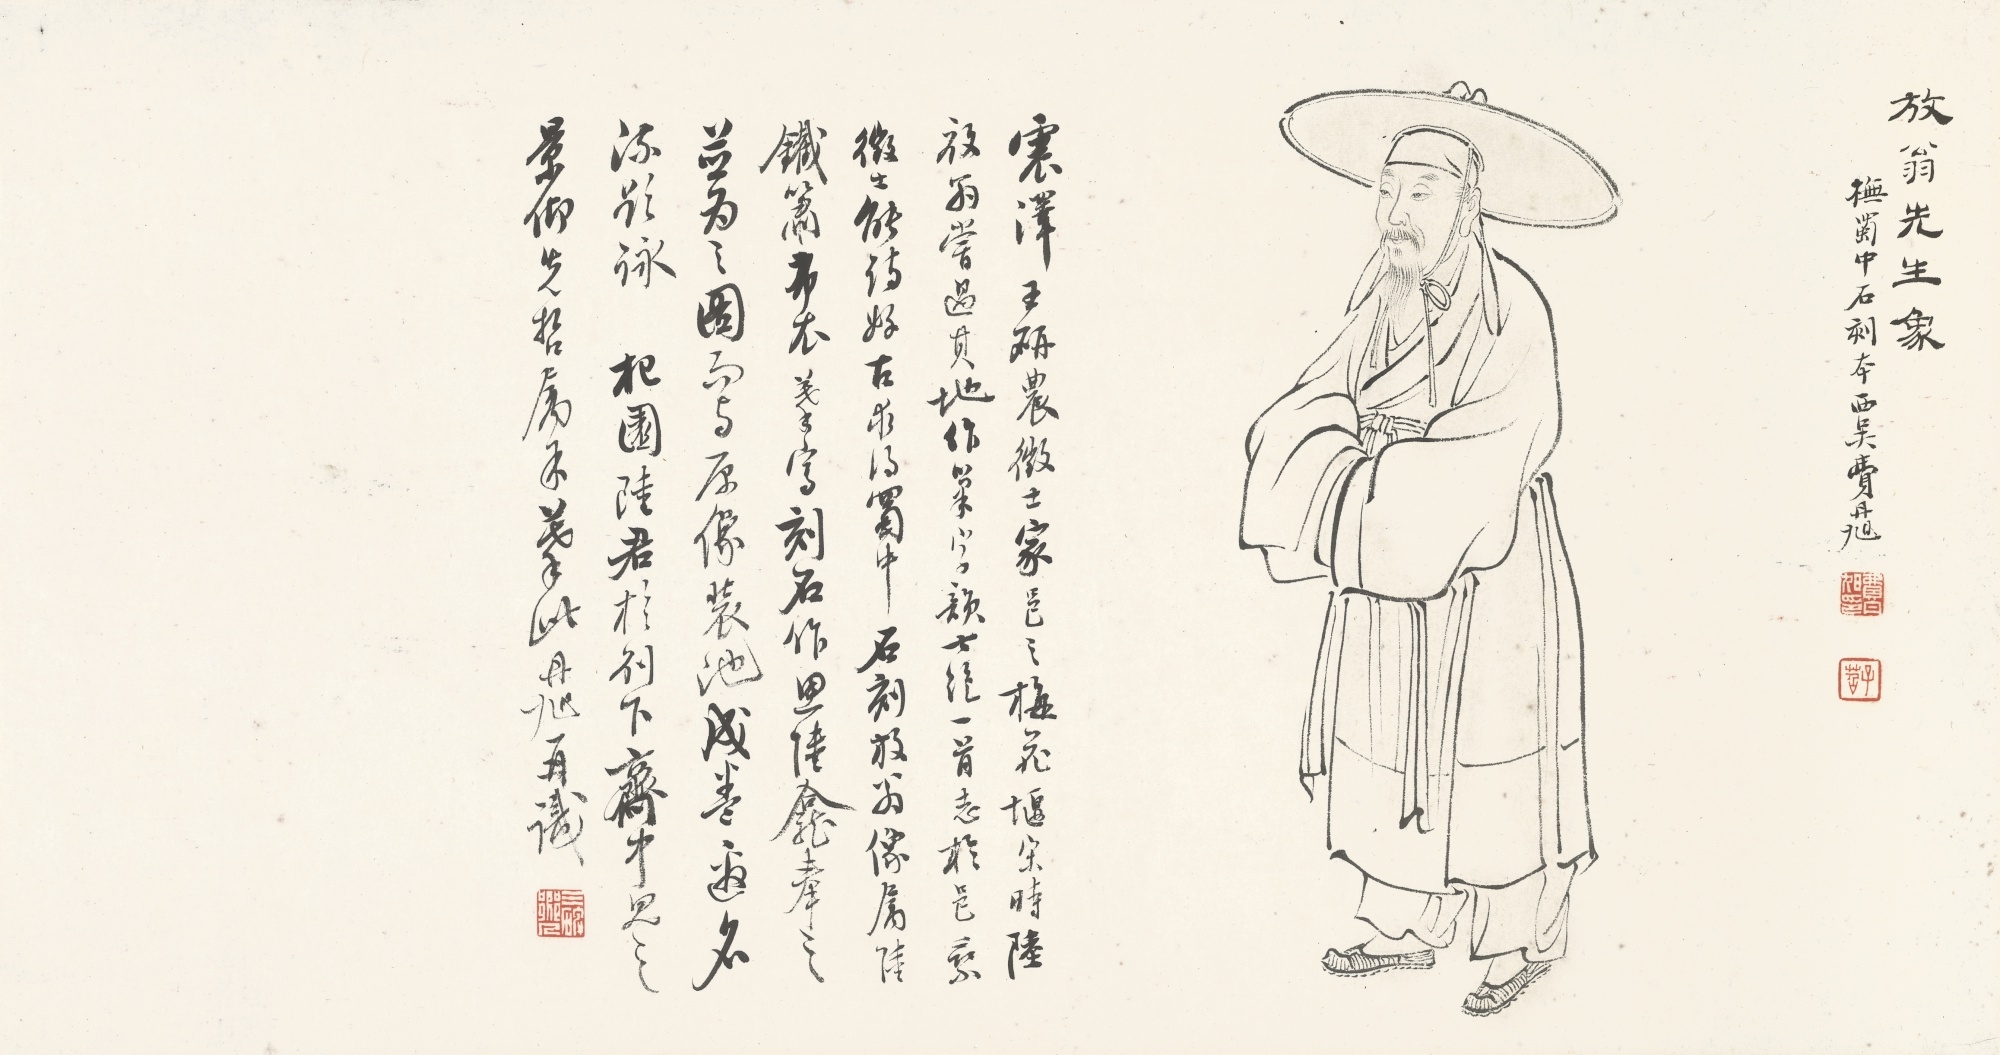 放翁先生象
橅蜀中石刻本西吳費丹旭
震澤王研農徵士家邑之梅花堰宋時陸
放翁嘗過其地作巢字韻七絕一首志於邑乘
徵士能詩好古求得蜀中石刻放翁像属陸
鐵簫布衣摹寫刻石作思陸龕奉之
並为之圖而寿原像裝池成卷遍名
流題詠 杞園陸君於列下齋中見之
景仰先哲属余摹此丹旭再識
子苕